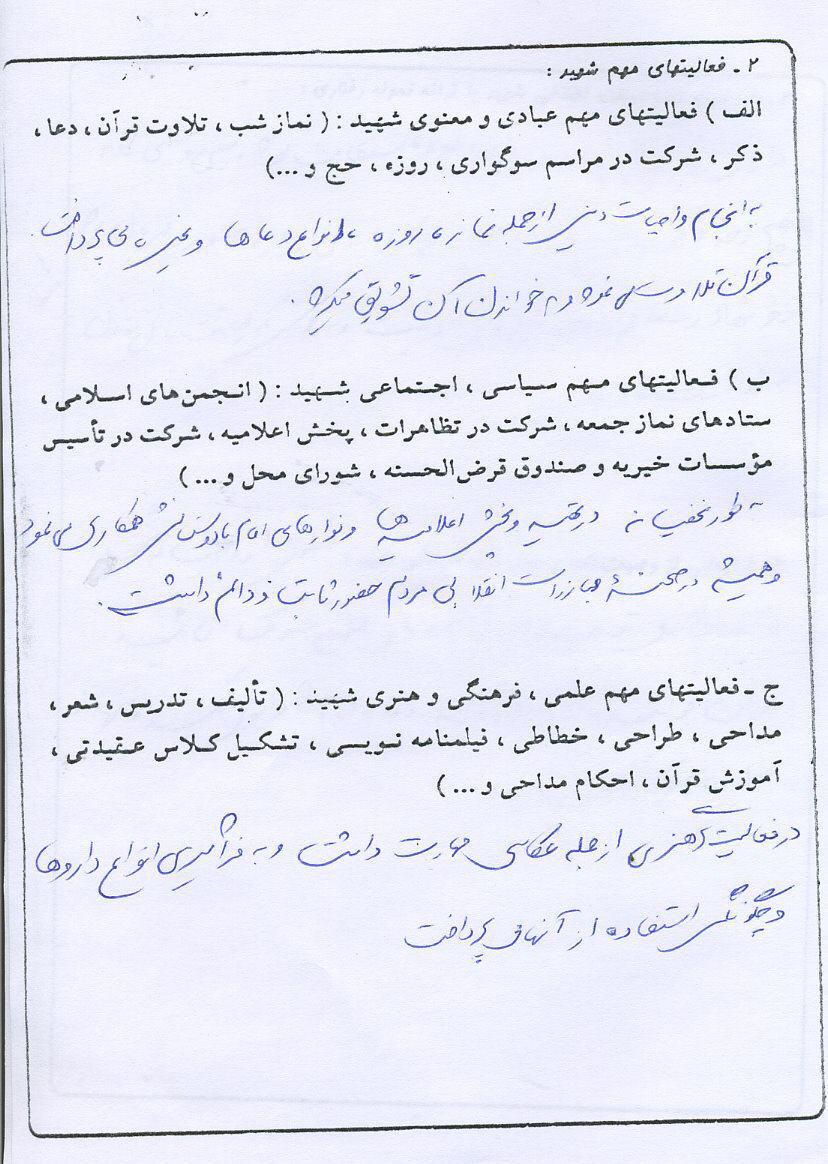 ۲ ـ فعالیتهای مهم شهید :
الف ) فعالیتهای مهم عبادی و معنوی شهید : ( نماز شب ، تلاوت قرآن ، دعا ،
ذکر ، شرکت در مراسم سوگواری ، روزه ، حج و ...)
به انجام واجبات دینی از جمله نماز ، روزه ، انواع دعاها و غیره می پرداخت
قرآن تلاوت می نمود و به خواندن آن تشویق میکرد .
ب ) فعالیتهای مهم سیاسی ، اجتماعی شهید : ( انجمن‌های اسلامی ،
ستادهای نماز جمعه ، شرکت در تظاهرات ، پخش اعلامیه ، شرکت در تأسیس
مؤسسات خیریه و صندوق قرض‌الحسنه ، شورای محل و ... )
به طور مخفیانه در تهیه و پخش اعلامیه ها و نوارهای امام با دوستانش همکاری می نمود
و همیشه در صحنهٔ مبارزات انقلابی مردم حضور ثابت و دائم داشت .
ج ـ فعالیتهای مهم علمی ، فرهنگی و هنری شهید : ( تألیف ، تدریس ، شعر ،
مداحی ، طراحی ، خطاطی ، فیلمنامه نویسی ، تشکیل کلاس عقیدتی ،
آموزش قرآن ، احکام مداحی و ... )
در فعالیت هنری از جمله عکاسی مهارت داشت و به فراگیری انواع داروها
و چگونگی استفاده از آنها می پرداخت